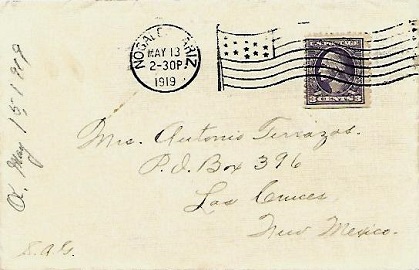 NOGALES, ARIZ.
MAY 13
2-30P.
1919
U.S. POSTAGE
3 CENTS 3
a. May 15 1919
Mrs. Antonio Terrazas.
P.O. Box 396
Las Cruces,
New Mexico.